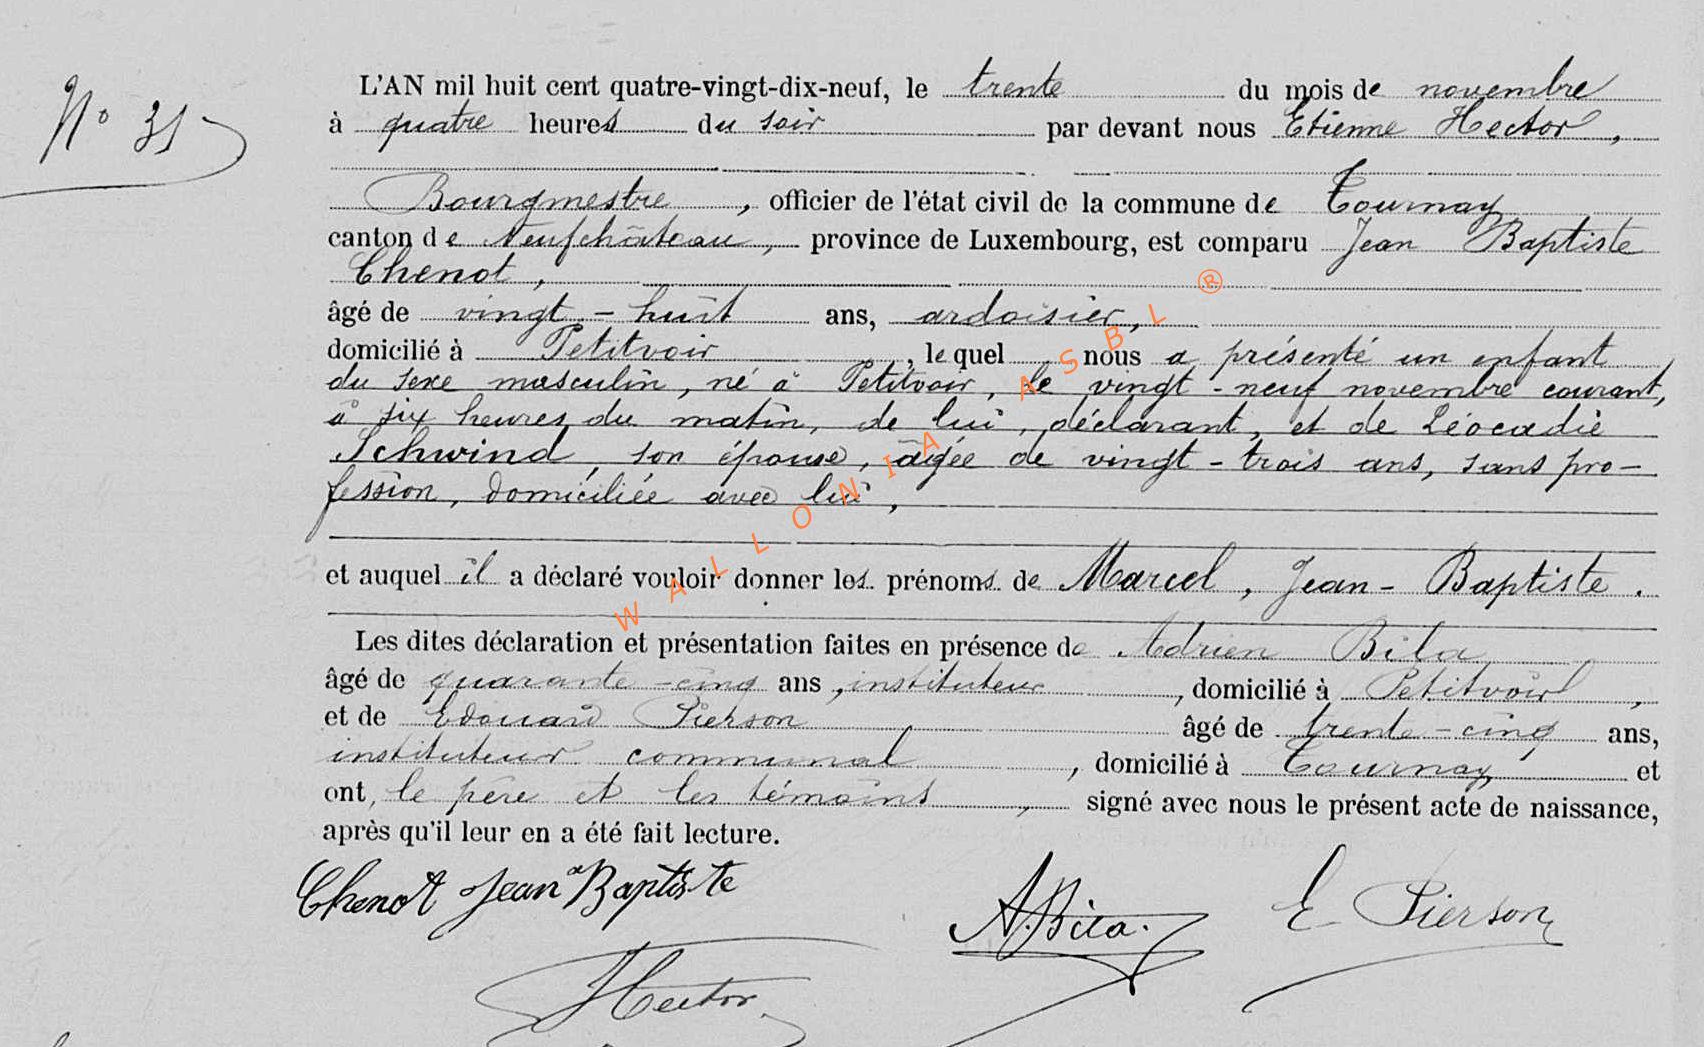 N° 31
L'AN mil huit cent quatre-vingt-dix-neuf, le trente du mois de novembre
à quatre heures du soir par devant nous Etienne Hector,
Bourgmestre, officier de l'état civil de la commune de Tournay
canton de Neufchâteau, province de Luxembourg, est comparu Jean Baptiste
Chenot,
âgé de vingt-huit ans, ardoisier,
domicilié à Petitvoir, lequel nous a présenté un enfant
du sexe masculin, né à Petitvoir, le vingt-neuf novembre courant,
à six heures du matin, de lui, déclarant, et de Léocadie
Schwind, son épouse, âgée de vingt-trois ans, sans pro-
fession, domiciliée avec lui,
et auquel il a déclaré vouloir donner les prénoms de Marcel, Jean-Baptiste.
Les dites déclaration et présentation faites en présence de Adrien Bila
âgé de quarante-cinq ans, instituteur, domicilié à Petitvoir,
et de Edouard Pierson âgé de trente-cinq ans,
instituteur communal, domicilié à Tournay et
ont, le père et les témoins, signé avec nous le présent acte de naissance,
après qu'il leur en a été fait lecture.
Chenot Jean Baptiste
A. Bila.
E. Pierson
Hector
WALLONIA ASBL ®